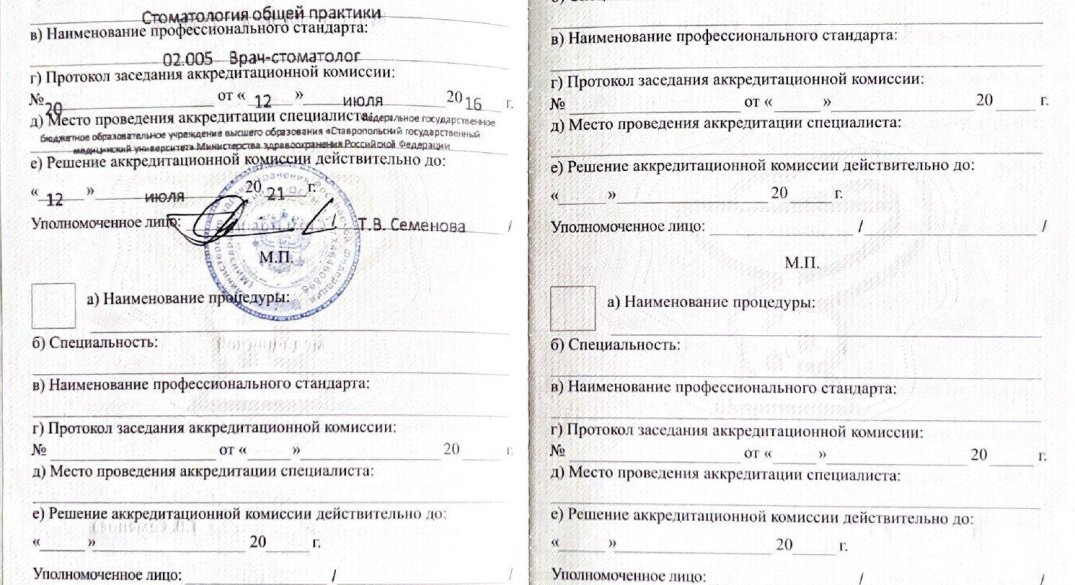 Стоматология общей практики
в) Наименование профессионального стандарта:
02.005 Врач-стоматолог
г) Протокол заседания аккредитационной комиссии:
№ 20 от « 12 » июля 2016 г.
д) Место проведения аккредитации специалиста: Федеральное государственное
бюджетное образовательное учреждение высшего образования «Ставропольский государственный
медицинский университет» Министерства здравоохранения Российской Федерации
е) Решение аккредитационной комиссии действительно до:
« 12 » июля 20 21 г.
Уполномоченное лицо: / Т.В. Семенова /
М.П.
а) Наименование процедуры:
б) Специальность:
в) Наименование профессионального стандарта:
г) Протокол заседания аккредитационной комиссии:
№ от « » 20 г.
д) Место проведения аккредитации специалиста:
е) Решение аккредитационной комиссии действительно до:
« » 20 г.
Уполномоченное лицо: / /
в) Наименование профессионального стандарта:
г) Протокол заседания аккредитационной комиссии:
№ от « » 20 г.
д) Место проведения аккредитации специалиста:
е) Решение аккредитационной комиссии действительно до:
« » 20 г.
Уполномоченное лицо: / /
М.П.
а) Наименование процедуры:
б) Специальность:
в) Наименование профессионального стандарта:
г) Протокол заседания аккредитационной комиссии:
№ от « » 20 г.
д) Место проведения аккредитации специалиста:
е) Решение аккредитационной комиссии действительно до:
« » 20 г.
Уполномоченное лицо: / /